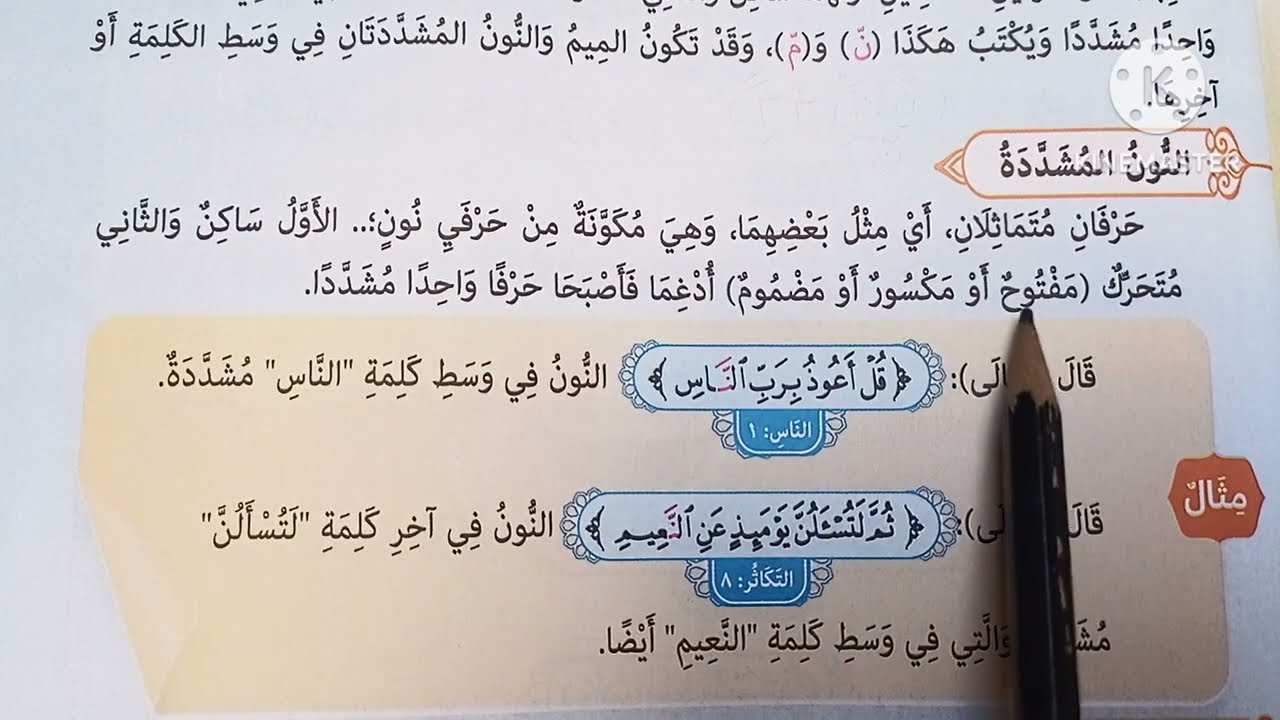 وَاحِدًا مُشَدَّدًا وَيُكْتَبُ هَكَذَا (نّ) وَ(مّ)، وَقَدْ تَكُونُ المِيمُ وَالنُّونُ المُشَدَّدَتَانِ فِي وَسَطِ الكَلِمَةِ أَوْ
آخِرِهَا.
K
KINEMASTER
النُّونُ المُشَدَّدَةُ
حَرْفَانِ مُتَمَاثِلَانِ، أَيْ مِثْلُ بَعْضِهِمَا، وَهِيَ مُكَوَّنَةٌ مِنْ حَرْفَيِ نُونٍ؛.. الأَوَّلُ سَاكِنٌ وَالثَّانِي
مُتَحَرِّكٌ (مَفْتُوحٌ أَوْ مَكْسُورٌ أَوْ مَضْمُومٌ) أُدْغِمَا فَأَصْبَحَا حَرْفًا وَاحِدًا مُشَدَّدًا.
قَالَ ﴿قُلْ أَعُوذُ بِرَبِّ ٱلنَّاسِ﴾ النُّونُ فِي وَسَطِ كَلِمَةِ "النَّاسِ" مُشَدَّدَةٌ.
النَّاسِ: ١
مِثَالٌ
قَالَ ﴿ثُمَّ لَتُسْـَٔلُنَّ يَوْمَئِذٍ عَنِ ٱلنَّعِيمِ﴾ النُّونُ فِي آخِرِ كَلِمَةِ "لَتُسْأَلُنَّ"
التَكَاثُر: ٨
وَالَّتِي فِي وَسَطِ كَلِمَةِ "النَّعِيمِ" أَيْضًا.